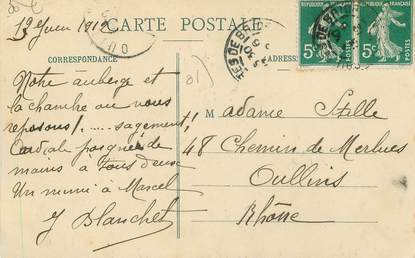 19 Juin 1912
CARTE POSTALE
CORRESPONDANCE
ADRESSE
Notre auberge et
la chambre où nous
reposons!.....sagement!
Cordiale poignée de
mains à tous deux
Un mimi à Marcel
J Blanchet
Madame Stille
48 Chemin de Merlues
Oullins
Rhône
RÉPUBLIQUE FRANÇAISE
5c
5c